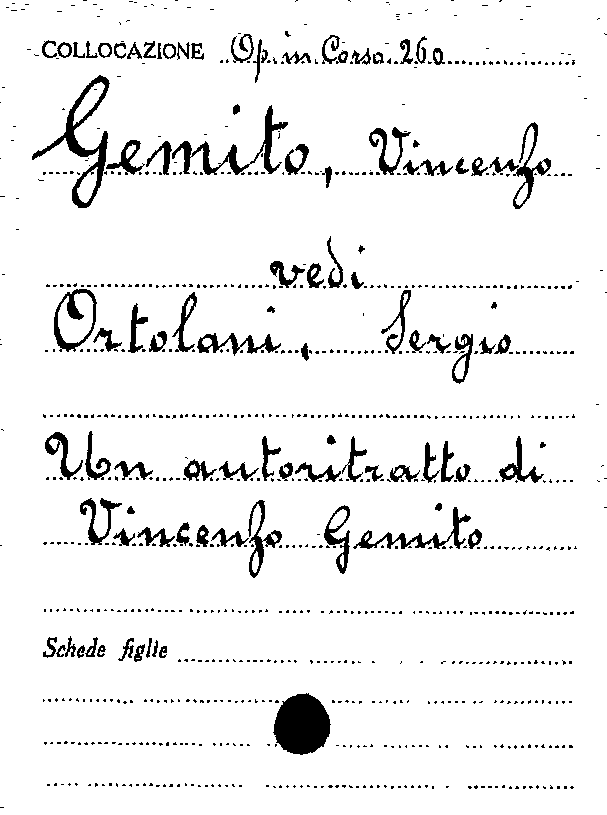 COLLOCAZIONE Op. in Corso 260
Gemito, Vincenzo
vedi
Ortolani, Sergio
Un autoritratto di
Vincenzo Gemito
Schede figlie